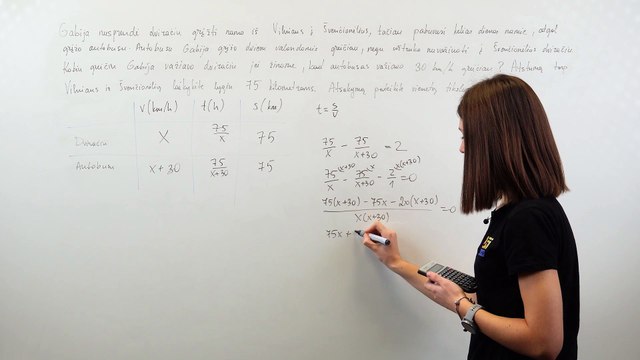 Gabija nusprendė dviračiu grįžti namo iš Vilniaus į Švenčionėlius, tačiau pabuvusi kelias dienas namie, atgal
grįžo autobusu. Autobusu Gabija grįžo dviem valandomis greičiau, negu užtruko nuvažiuoti į Švenčionėlius dviračiu.
Kokiu greičiu Gabija važiavo dviračiu, jei žinome, kad autobusas važiavo 30 km/h greičiau? Atstumą tarp
Vilniaus ir Švenčionėlių laikykite lygiu 75 kilometrams. Atsakymą pateikite vienetų
v (km/h) t (h) s (km)
Dviračiu x 75/x 75
Autobusu x+30 75/(x+30) 75
t = s/v
75/x - 75/(x+30) = 2
75/x - 75/(x+30) - 2/1 = 0
(75(x+30) - 75x - 2x(x+30))/(x(x+30)) = 0
75x +